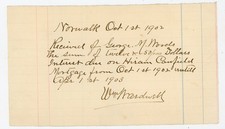 Norwalk Oct 1st 1902
Received of George M. Woods
The sum of Twelve Dollars
Interest due on Hiram Canfield
Mortgage from Oct 1st 1902 untill
Apr 1st 1903
Wm Wardwell